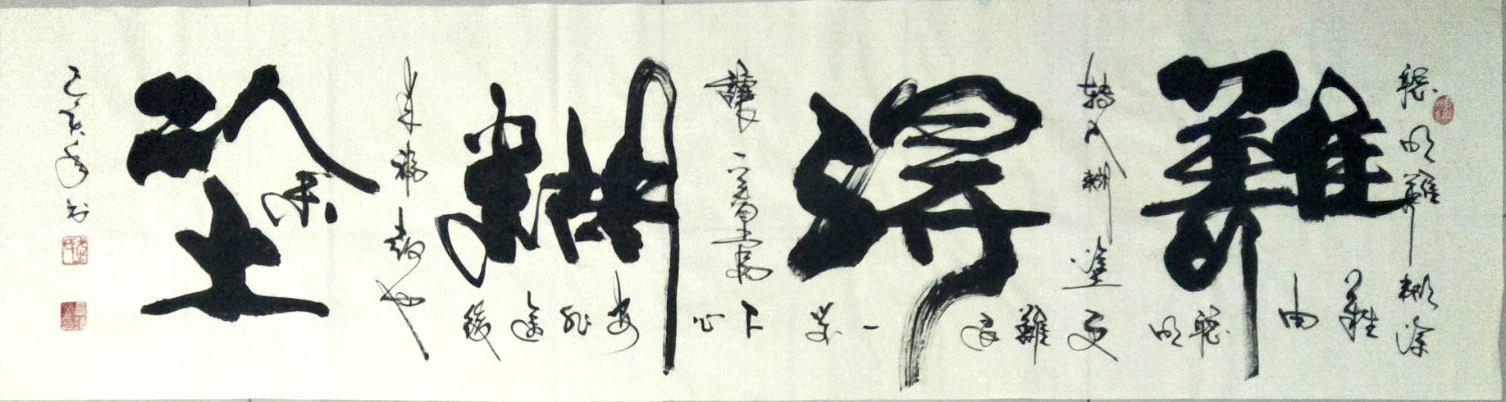 難得糊塗
聰明難糊塗
難由
聰明
轉入糊塗更
難放一著
下心
安非圖後
来福報也
己亥年书